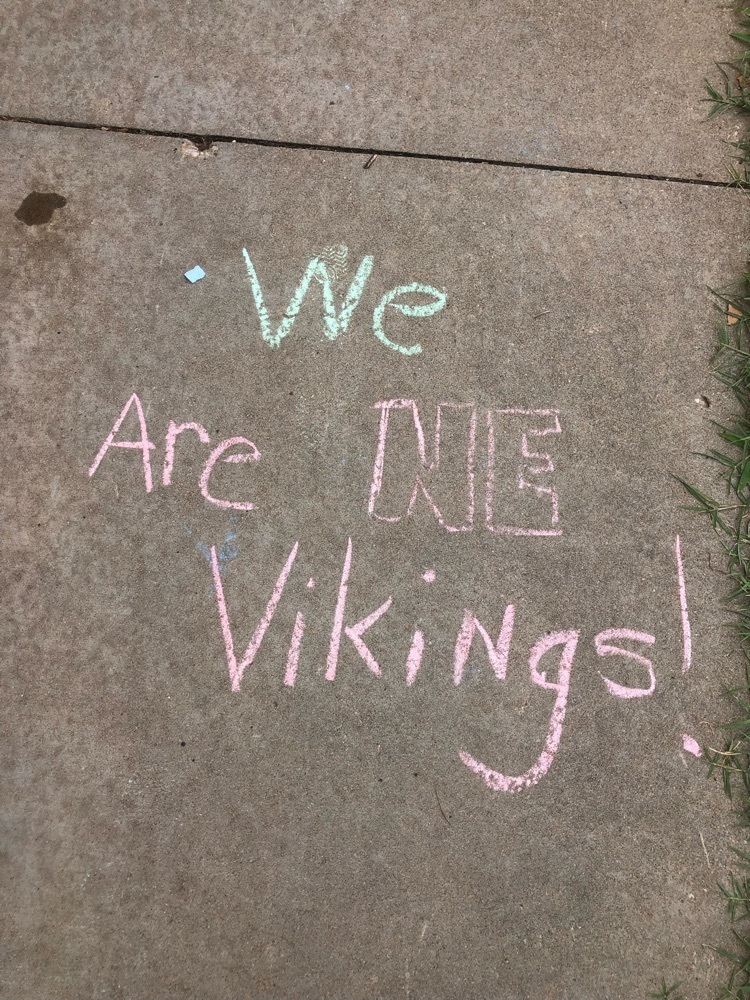 We
Are NE
Vikings!